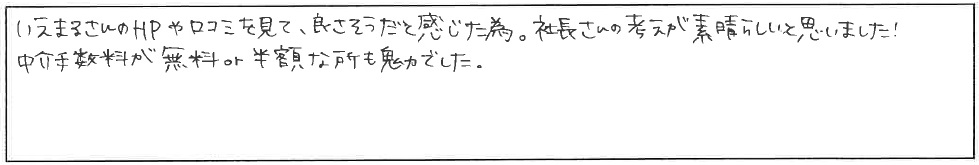 いえまるさんのHPや口コミを見て、良さそうだと感じた為。社長さんの考えが素晴らしいと思いました!
中介手数料が無料or半額な所も魅力でした。